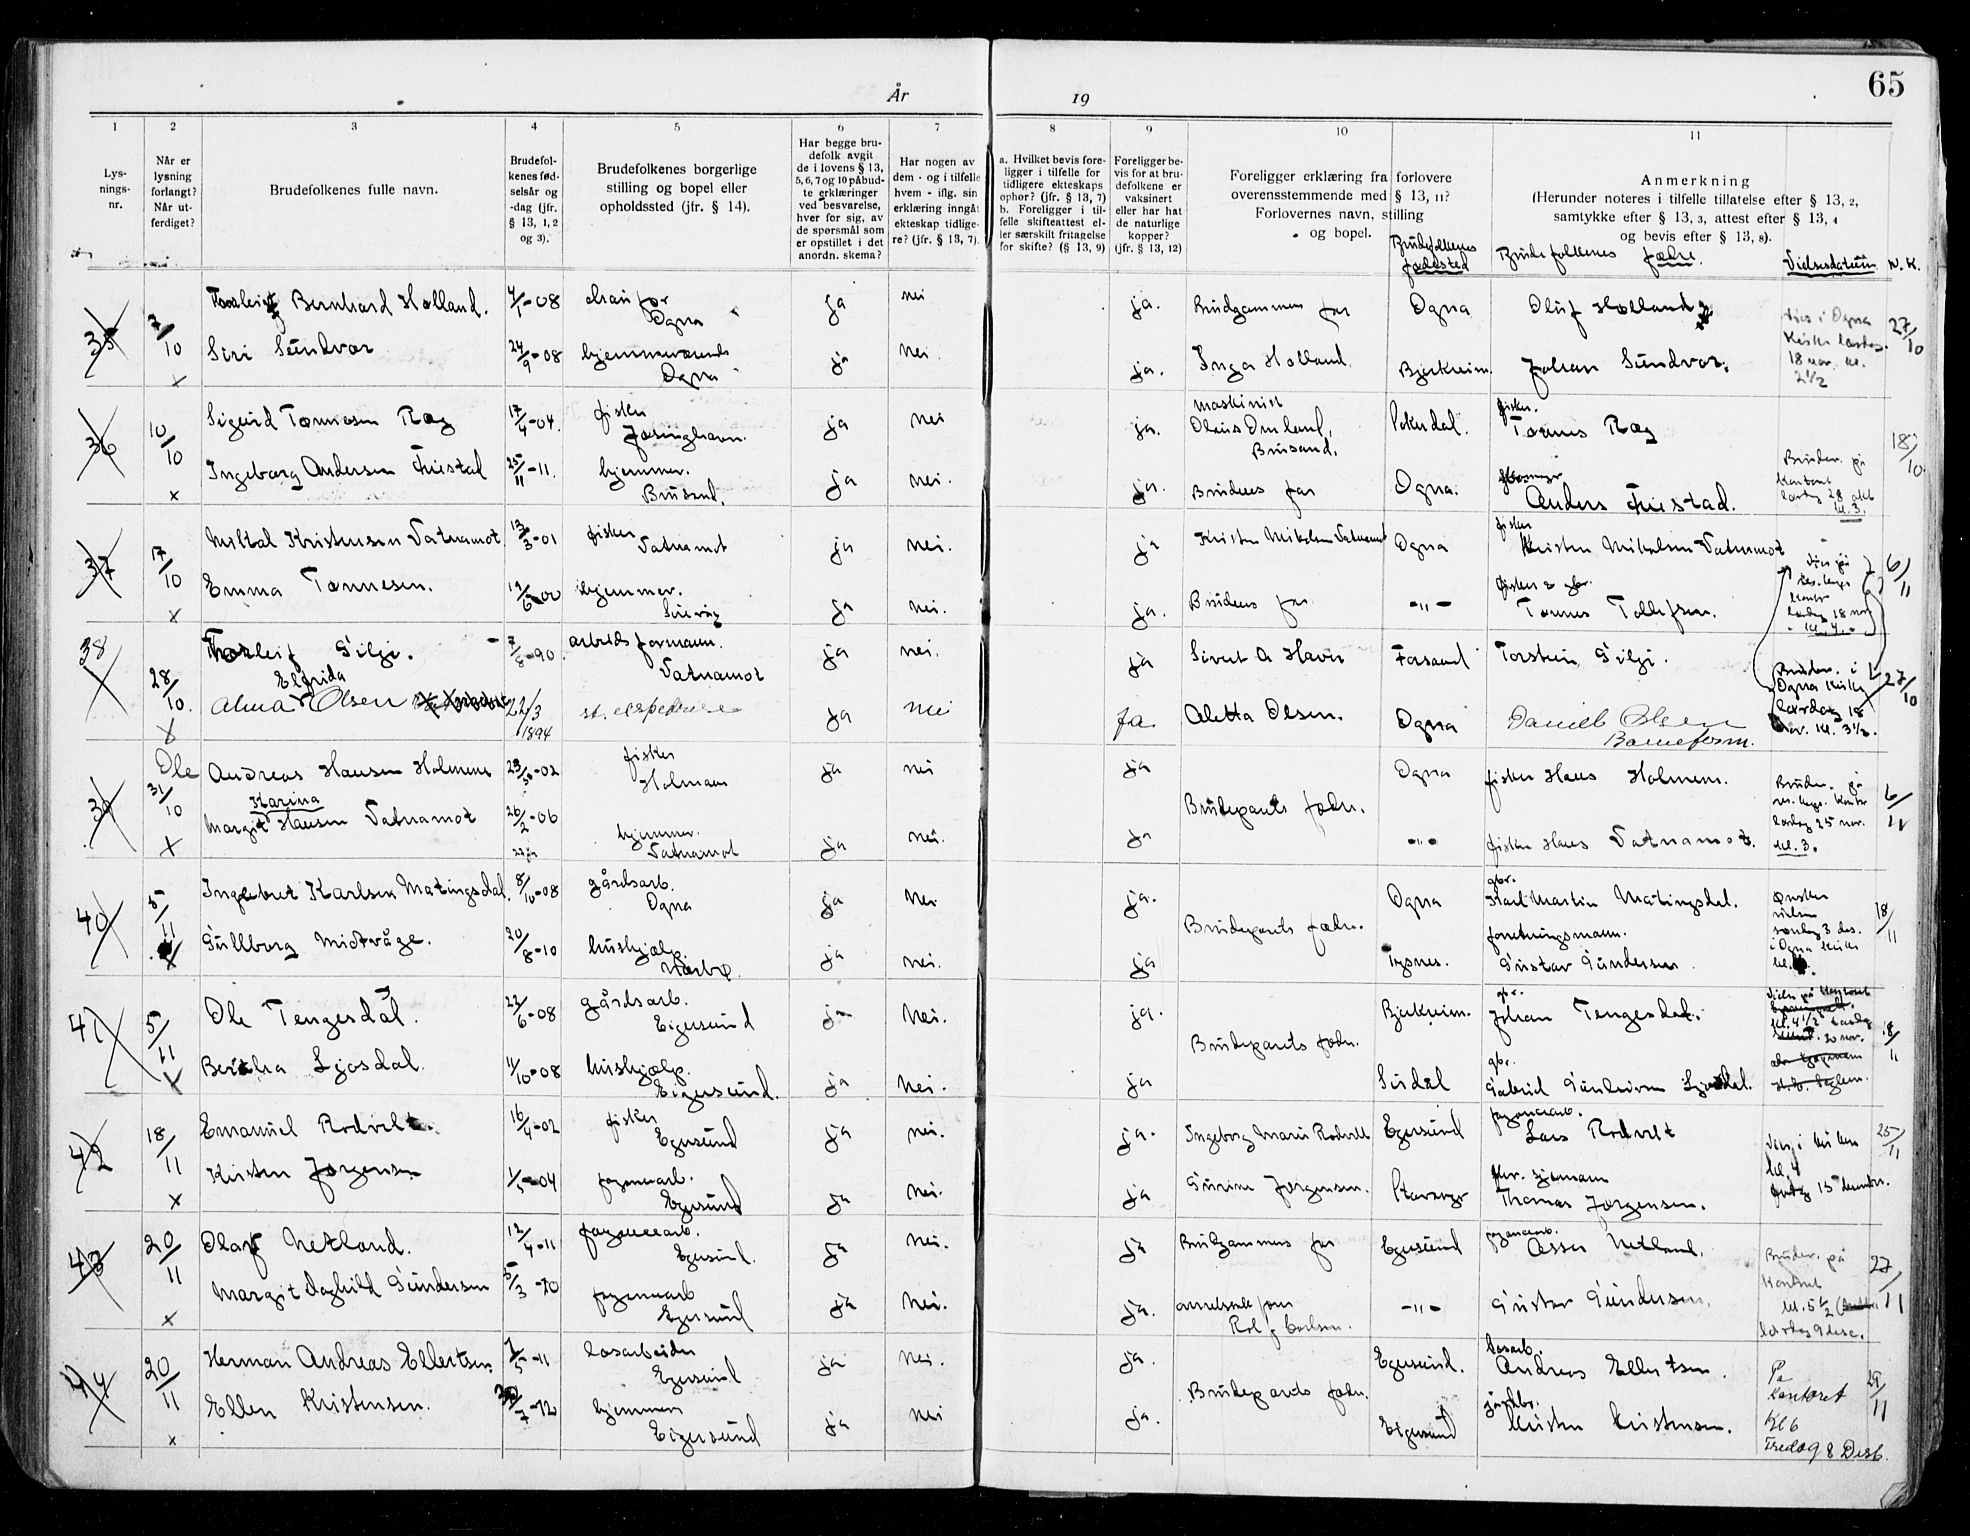 65
År
19
1 2 3 4 5 6 7 8 9 10 11
Lys-
nings-
nr.
Når er
lysning
forlangt?
Når ut-
ferdiget?
Brudefolkenes fulle navn.
Brudefol-
kenes fød-
selsår og
-dag (jfr.
§ 13, 1, 2
og 3).
Brudefolkenes borgerlige
stilling og bopel eller
opholdssted (jfr. § 14).
Har begge bru-
defolk avgit
de i lovens § 13,
5, 6, 7 og 10 påbud-
te erklæringer
ved besvarelse,
hver for sig, av
de spørsmål som
er opstillet i det
anordn. skema?
Har nogen av
dem - og i tilfelle
hvem - iflg. sin
erklæring inngåt
ekteskap tidlige-
re? (jfr. § 13, 7).
a. Hvilket bevis fore-
ligger i tilfelle for
tidligere ekteskaps
ophør? (jfr. § 13, 7)
b. Foreligger i til-
felle skifteattest el-
ler særskilt fritagelse
for skifte? (§ 13, 9)
Foreligger be-
vis for at bru-
defolkene er
vaksinert
eller har hat
de naturlige
kopper?
(jfr. § 13, 12)
Foreligger erklæring fra forlovere
overensstemmende med § 13, 11?
Forlovernes navn, stilling
og bopel.
Brudefolkenes
fødested
Anmerkning
(Herunder noteres i tilfelle tillatelse efter § 13, 2,
samtykke efter § 13, 3, attest efter § 13, 4
og bevis efter § 13, 8).
Brudefolkenes fædre.
Vielsesdatum N. K.
35 7/10 Thorleif Bernhard Holland. 4/1-08 chaufør Ogna ja nei ja. Brudgommens far Ogna Oluf Holland
Vies i Ogna
Kirke lørdag
18 nov. kl.
2 1/2
27/10
Siri Sundvor 24/9-08 hjemmeværende Ogna ja nei. ja. Inga Holland. Bjerkreim. Johan Sundvor.
36 10/10 Sigurd TønnesenRæg 17/4-04. fisker Jøsinghavn. ja nei ja. maskinist Olaus Omland, Brusand. Sokndal. fisker. Tønnes Ræg
18/10
Ingeborg Andersen Fuistad 25/11-11. hjemmev. Brusand. ja nei. ja. Brudens far Ogna. Anders Fuistad.
Bruder. på
kontoret
lørdag 28 okt
kl. 3.
37 17/10 Miltal Kristensen Vatnamot 13/3-01 fisker Vatnamot ja nei. ja Kristen Mikalsen Vatnamot Ogna fisker Kristen Mikalsen Vatnamot
6/11
Emma Tønnesen. 19/6-00 hjemmev. Sirevåg ja nei. ja. Brudens far -"- fisker & gbr. Tønnes Tollefsen.
Vies på
res. kap.s
kontor
lørdag 18 nov
kl. 4.
38 28/10. Thorleif Gilje. 7/8-90. arbeidsformann. Vatnamot ja nei. ja Sivert A Haver Forsand Torstein Gilje.
27/10
Elfrida
Alma Olsen 22/3 1894 st. ekspeditrise ja nei ja. Aletta Olsen. Ogna Daniel Olsen Baneform.
Bruder. i
Ogna kirke
lørdag 18
nov. kl. 3 1/2.
39 31/10 Ole
Andreas Hansen Holmene 23/10-02 fisker Holmam ja nei ja Brudeparets fædre. Ogna fisker Hans Holmem.
6/11
Karina
Margit Hansen Vatnamot 26/2-06 hjemmev. Vatnamot ja nei. ja -"- fisker Hans Vatnamot.
Bruder. på
res. kaps. kontor
lørdag 25 nov.
kl. 3.
40 5/11 Ingebret Karlsen Matingsdal. 8/10-08 gårdsarb. Ogna ja nei ja. Brudeparets fædre. Ogna gbr. Karl Martin Matingsdal.
18/11
Gullborg Midtvåge. 20/8-10 hushjælp. Nærbø. ja nei. ja Tysnes. forretningsmann. Gustav Gundersen.
Ønsker
vielsen
søndag 3 des.
i Ogna kirke
kl.
41 5/11 Ole Tengesdal. 22/6-08 gårdsarb. Eigersund ja nei. ja. Brudeparets fædre. Bjerkreim. gbr. Johan Tengesdal.
18/11
Bertha Ljosdal. 11/10-08 hushjælp. Eigersund. ja nei. ja Sirdal gbr. Gabriel Ljosdal.
kontoret
kl. 4 1/2
20 nov.
42 18/11 Emanuel Rodvelt. 16/4-02 fisker Egersund ja nei. ja. Ingeborg Marie Rodvelt Egersund fayancearb. Lars Rodvelt
25/11
Kirsten Jørgensen 1/5-04 fayancearb. Egersund ja nei. ja Gurine Jørgensen. Stavanger fhv. sjømann Thomas Jørgensen.
Vies i kirken
kl. 4
fredag 15 desember.
43 20/11 Olaf Netland. 12/4-11 fayancearb. Egersund. ja nei. ja Brudgommens far Egersund fayancearb. Asser Netland.
27/11
Margit Daghild Gundersen 5/3-10 fayancearb Egersund ja nei. ja. Rolf Carlsen. -"- Gustav Gundersen.
Bruder. på
kontoret
kl. 5 1/2
lørdag 9 dese.
44 20/11 Herman Andreas Ellertsen. 7/5-11 løsarbeider Egersund ja nei. ja. Brudeparets fædre. Egersund. løsarb. Andreas Ellertsen.
29/11
Ellen Kristensen. 7-12 hjemmev Eigersund ja nei ja. Eigersund Kristen Kristensen.
På
kontoret
Kl 6
Fredag 8 Desb.